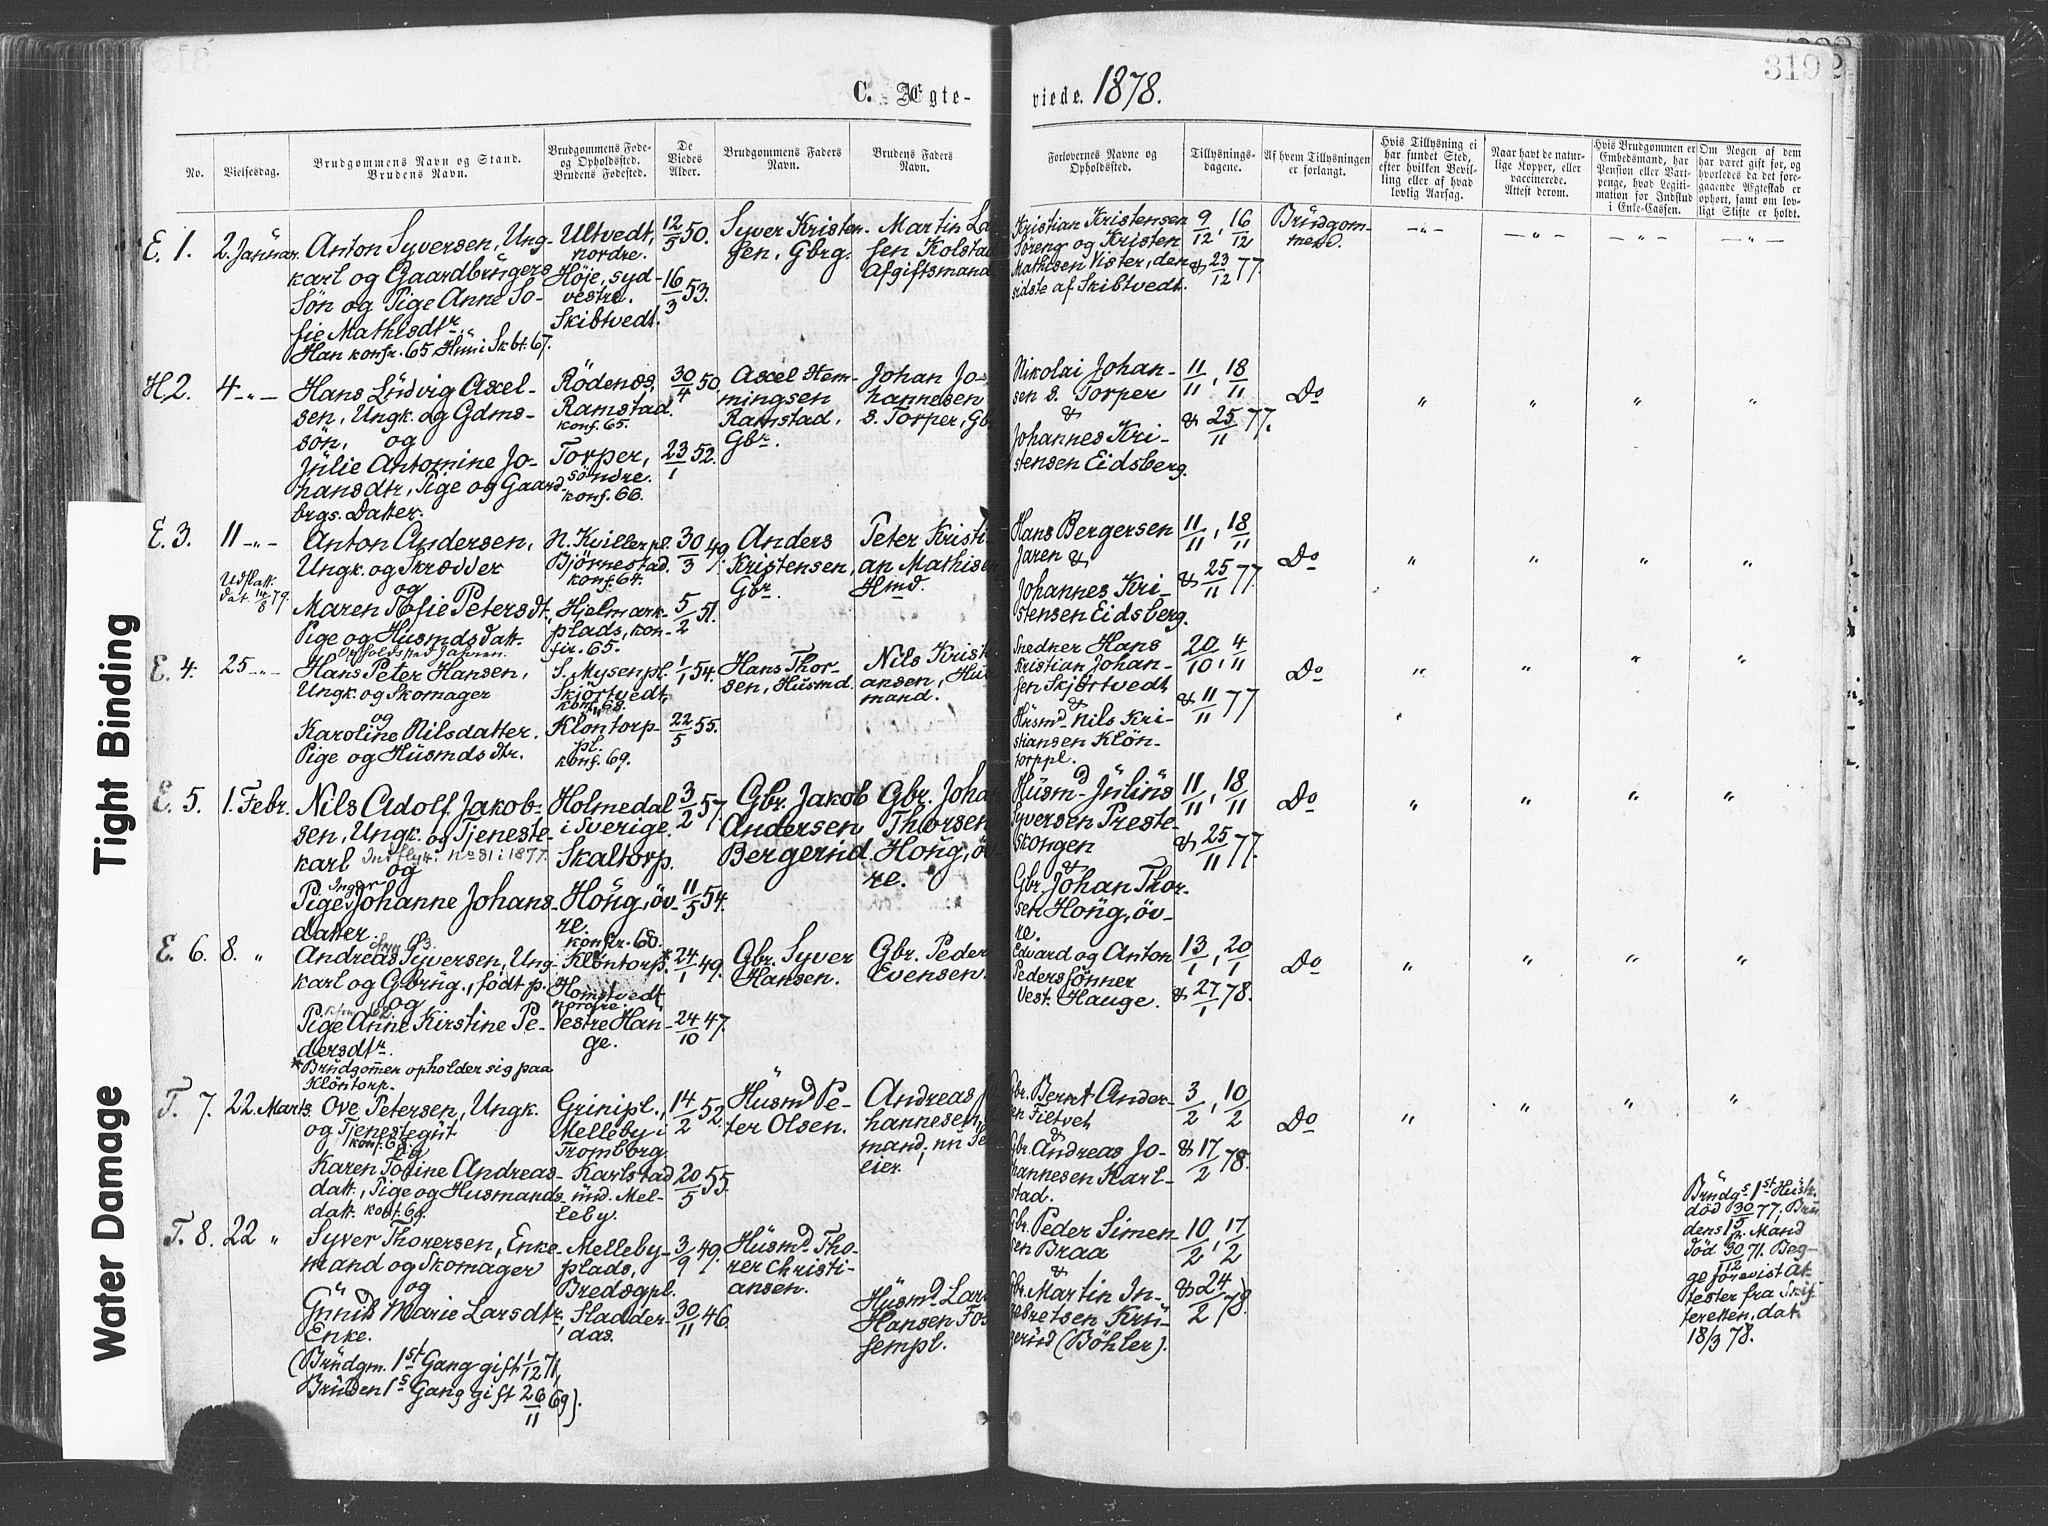 C. Ægte-
viede. 1878.
319
No.
Vielsesdag.
Brudgommens Navn og Stand.
Brudens Navn.
Brudgommens Føde-
og Opholdssted.
Brudens Fødested.
De
Viedes
Alder.
Brudgommens Faders
Navn.
Brudens Faders
Navn.
Forlovernes Navne og
Opholdssted.
Tillysnings-
dagene.
Af hvem Tillysningen
er forlangt.
Hvis Tillysning ei
har fundet Sted,
efter hvilken Bevil-
ling eller af hvad
lovlig Aarsag.
Naar havt de natur-
lige Kopper, eller
vaccinerede.
Attest derom.
Hvis Brudgommen er
Embedsmand, har
Pension eller Vart-
penge, hvad Legiti-
mation for Indskud
i Enke-Cassen.
Om Nogen af dem
har været gift før, og
hvorledes da det fore-
gaaende Ægteskab er
ophørt, samt om lov-
ligt Skifte er holdt.
E. 1.
2. Januar.
Anton Syversen, Ung-
karl og Gaardbrugers
Søn og Pige Anne So-
fie Mathisdtr.
Han konfr. 65 Hun i Skbt. 67.
Ultvedt,
nordre.
Høje, syd-
vestre.
Skibtvedt.
12/5 50.
16/3 53.
Syver Kristen-
sen, Gbrg.
Martin La
sen Kolstad
Afgiftsmand
Kristian Kristensen
Søreng og Kristen
Mathisen Vister, den
sidste af Skibtvedt.
9/12, 16/12
& 23/12 77.
Brudgom-
mend.
-"-
-"-
-"-
-"-
H 2.
4 -"-
Hans Ludvig Axel-
sen, Ungk. og Gdms-
søn, og
Julie Antomine Jo-
hansdtr, Pige og Gaard-
brgs. Datter.
Rødenæs,
Ramstad.
konf. 65.
Torper,
søndre.
konf. 66.
30/4 50.
23/1 52.
Axel Hem-
mingsen
Ramstad,
Gbr.
Johan Jo-
hannesen
s. Torper, Gb
Nikolai Johan-
sen s. Torper
&
Johannes Kri-
stensen Eidsberg.
11/11, 18/11
& 25/11 77.
Do
"
"
"
"
E. 3.
11 -"-
Udflatt.
dat. 14/8 79.
Anton Andersen,
Ungk. og Skrædder
og
Maren Sofie Petersdt.
Pige og Husmdsdatt.
Opholdssted Jahren.
N. Kvillerpl.
Bjørnestad.
konf. 64.
Hjelmark-
plads, kon-
fir. 65.
30/3 49.
5/2 51.
Anders
Kristensen,
Gbr.
Peter Kristi
an Mathisen
Hmd.
Hans Bergersen
Jaren &
Johannes Kri-
stensen Eidsberg.
11/11, 18/11
& 25/11 77.
Do
"
"
"
"
E. 4.
25 -"-
Hans Peter Hansen,
Ungk. og Skomager
og
Karoline Nilsdatter.
Pige og Husmdsdtr.
S. Mysenpl.
Skjørtvedt,
konf. 68.
Kløntorp-
pl.
konf. 69.
1/1 54.
22/5 55.
Hans Thor-
sen, Husmd.
Nils Krist
ansen, Hus
mand.
Snedker Hans
Kristian Johan-
sen Skjørtvedt
&
Husmd. Nils Kri-
stiansen Kløn-
torppl.
20/10, 4/11
& 11/11 77
Do
"
"
"
"
E. 5.
1. Febr.
Nils Adolf Jakob-
sen, Ungk. og Tjeneste-
karl Indflytt. No 31 i 1877.
og
Pige Inger Johanne Johans-
datter.
Holmedal
i Sverige.
Skaltorp.
Houg, øv-
re.
konfr. 68.
3/2 57.
11/5 54.
Gbr. Jakob
Andersen
Bergerud.
Gbr. Johan
Thorsen
Houg, øv-
re.
Husmd. Julius
Syversen Preste-
skougen
&
Gbr. Johan Thor-
sen Houg, øv-
re.
11/11, 18/11
& 25/11 77.
Do
"
"
"
"
E. 6.
8. "
Andreas Syversen, Ung-
karl og Gbrug., født p.
og
Pige Anne Kirstine Pe-
dersdtr.
*Brudgommen opholder sig paa
Kløntorp.
Kløntorp*
Homstvedt
nordre.
Vestre Hau-
ge.
24/1 49.
24/10 47.
Gbr. Syver
Hansen.
Gbr. Peder
Evensen.
Edvard og Anton
Pederssønner
Vest. Hauge.
13/1, 20/1
& 27/1 78.
Do
"
"
"
"
T. 7.
22. Marts
Ove Petersen, Ungk.
og Tjenestegut
konf. 68
og
Karen Josine Andreas-
datt., Pige og Husmands-
datt. konf. 69.
Grinipl.,
Melleby i
Tromborg
Karlstad
und. Mel-
leby.
14/2 52.
20/5 55.
Husmd Pe-
ter Olsen.
Andreas
hannesen,
mand, nu Sel
eier.
Gbr. Bernt Ander-
sen Filtvet
&
Gbr. Andreas Jo-
hannesen Karl-
stad.
3/2, 10/2
& 17/2 78.
Do
"
"
"
"
T. 8.
22 "
Syver Thorersen, Enke-
mand og Skomager
og
Gunild Marie Larsdtr,
Enke.
(Brudgm. 1st Gang gift 1/12 71,
Bruden 1s Gang gift 26/11 69).
Melleby-
plads,
Bredsgpl.
Sladder-
aas.
3/9 49.
30/11 46.
Husmd. Tho-
rer Christi-
ansen.
Husmd. Lars
Hansen Fos
sempl.
Gbr. Peder Simen-
sen Braa
&
Gbr. Martin In-
gebretsen Kru-
gerud (Bøhler).
10/2, 17/2
& 24/2 78.
Brudgs 1st Hustr.
død 30/5 77. Bru
dens 1st. Mand
død 30/12 71. Beg-
ge forevist At-
tester fra Skif
teretten, dat
18/3 78.
Tight Binding
Water Damage